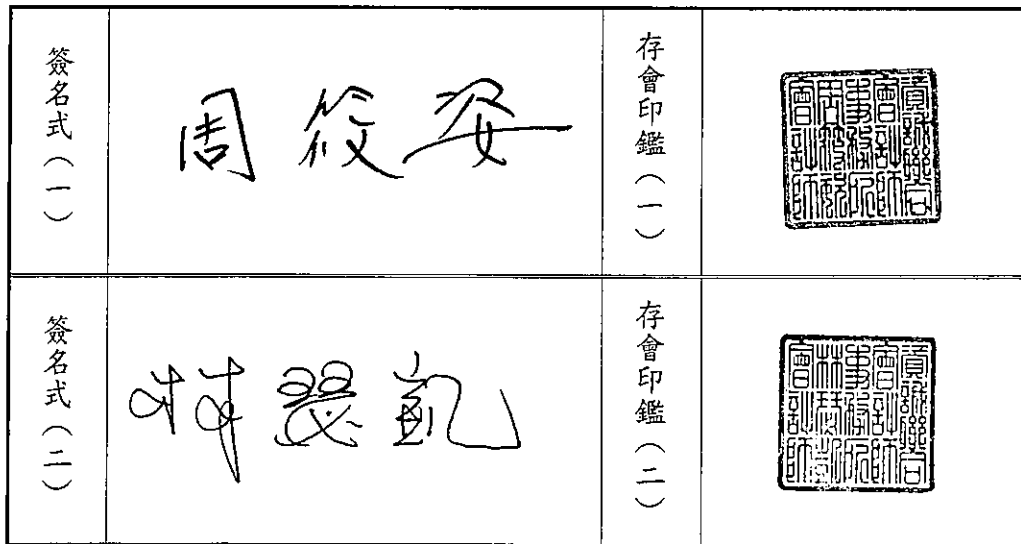 簽名式（一）
周筱姿
存會印鑑（一）
資誠聯合
會計師
事務所
周筱姿
會計師
簽名式（二）
林瑟凱
存會印鑑（二）
資誠聯合
會計師
事務所
林瑟凱
會計師